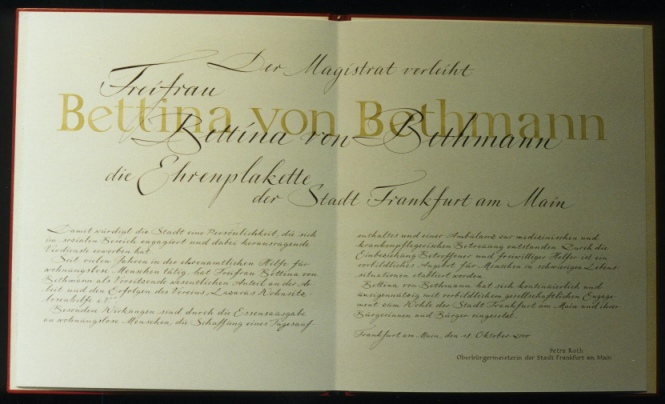 Der Magistrat verleiht
Freifrau
Bettina von Bethmann
Bettina von Bethmann
die Ehrenplakette
der Stadt Frankfurt am Main
Damit würdigt die Stadt eine Persönlichkeit, die sich
im sozialen Bereich engagiert und dabei herausragende
Verdienste erworben hat.
Seit vielen Jahren in der ehrenamtlichen Hilfe für
wohnungslose Menschen tätig, hat Freifrau Bettina von
Bethmann als Vorsitzende wesentlichen Anteil an der Ar-
beit und den Erfolgen des Vereins „Lazarus Wohnsitz-
losenhilfe e.V.“
Besondere Wirkungen sind durch die Essensausgabe
an wohnungslose Menschen, die Schaffung eines Tagesauf-
enthaltes und einer Ambulanz zur medizinischen und
krankenpflegerischen Betreuung entstanden. Durch die
Einbeziehung Betroffener und freiwilliger Helfer ist ein
vorbildliches Angebot für Menschen in schwierigen Lebens-
situationen etabliert worden.
Bettina von Bethmann hat sich kontinuierlich und
uneigennützig mit vorbildlichem gesellschaftlichen Engage-
ment zum Wohle der Stadt Frankfurt am Main und ihrer
Bürgerinnen und Bürger eingesetzt.
Frankfurt am Main, den Oktober
Petra Roth
Oberbürgermeisterin der Stadt Frankfurt am Main